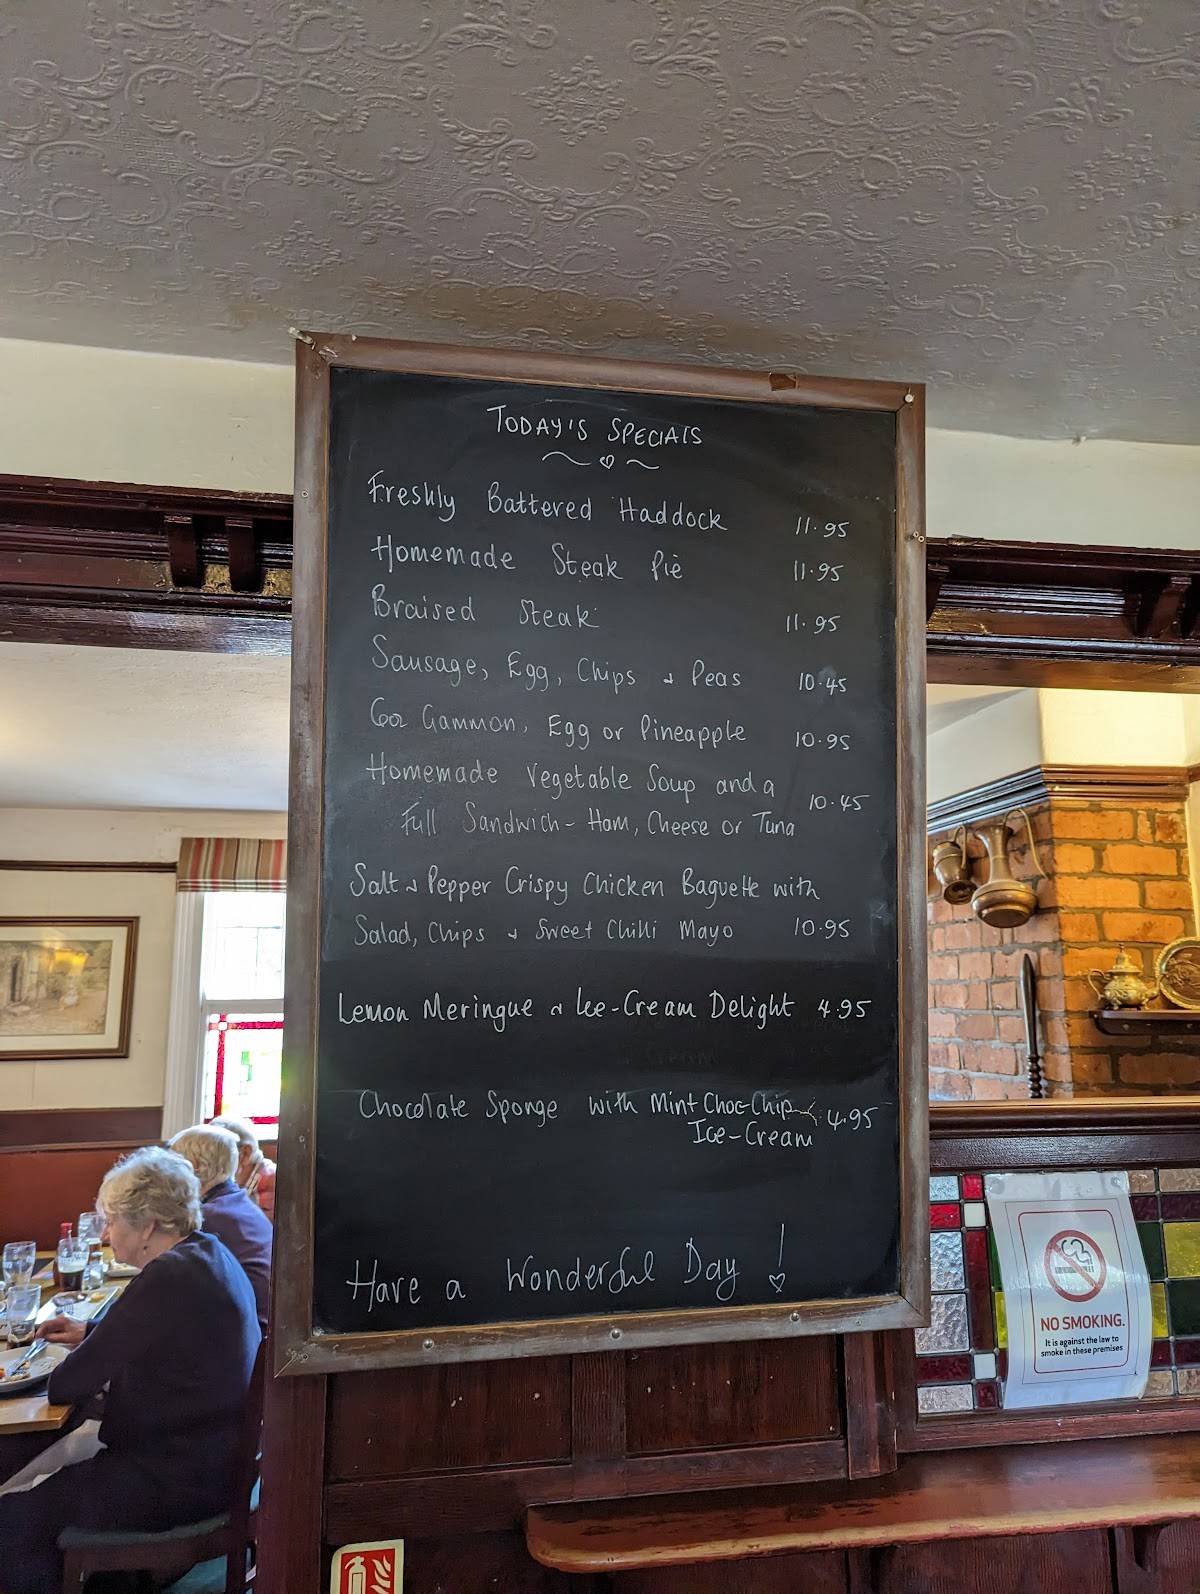 TODAY'S SPECIALS
Freshly Battered Haddock 11.95
Homemade Steak Pie 11.95
Braised Steak 11.95
Sausage, Egg, Chips & Peas 10.45
6oz Gammon, Egg or Pineapple 10.95
Homemade Vegetable Soup and a
Full Sandwich - Ham, Cheese or Tuna 10.45
Salt & Pepper Crispy Chicken Baguette with
Salad, Chips & Sweet Chilli Mayo 10.95
Lemon Meringue & Ice-Cream Delight 4.95
Chocolate Sponge with Mint Choc-Chip 4.95
Ice-Cream
Have a Wonderful Day!
NO SMOKING.
It is against the law to
smoke in these premises